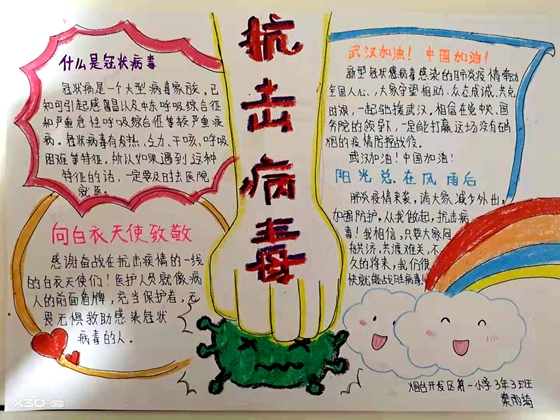 什么是冠状病毒
冠状病是一个大型病毒家族,已
知可引起感冒以及中东呼吸综合征
和严重急性呼吸综合征等较严重疾
病。冠状病毒有发热、乏力、干咳、呼吸
困难等特征。所以如果遇到这种
特征的话,一定要及时去医院
就医。
向白衣天使致敬
感谢奋战在抗击疫情的一线
的白衣天使们!医护人员就像病
人的前面盾牌,充当保护者,无
畏无惧救助感染冠状
病毒的人。
抗击病毒
武汉加油!中国加油!
新型冠状病毒感染的肺炎疫情牵动
全国人心,大家守望相助、众志成城、共克
时艰,一起驰援武汉。相信在党中央、国
务院的领导下,一定能打赢这场没有硝
烟的疫情防控战役。
武汉加油!中国加油!
阳光总在风雨后
肺炎疫情来袭,请大家减少外出,
加强防护,从我做起,抗击病
毒!我相信,只要大家同
舟共济,共渡难关,不
久的将来,我们很
快就能战胜病毒!
烟台开发区第一小学3年3班
X30